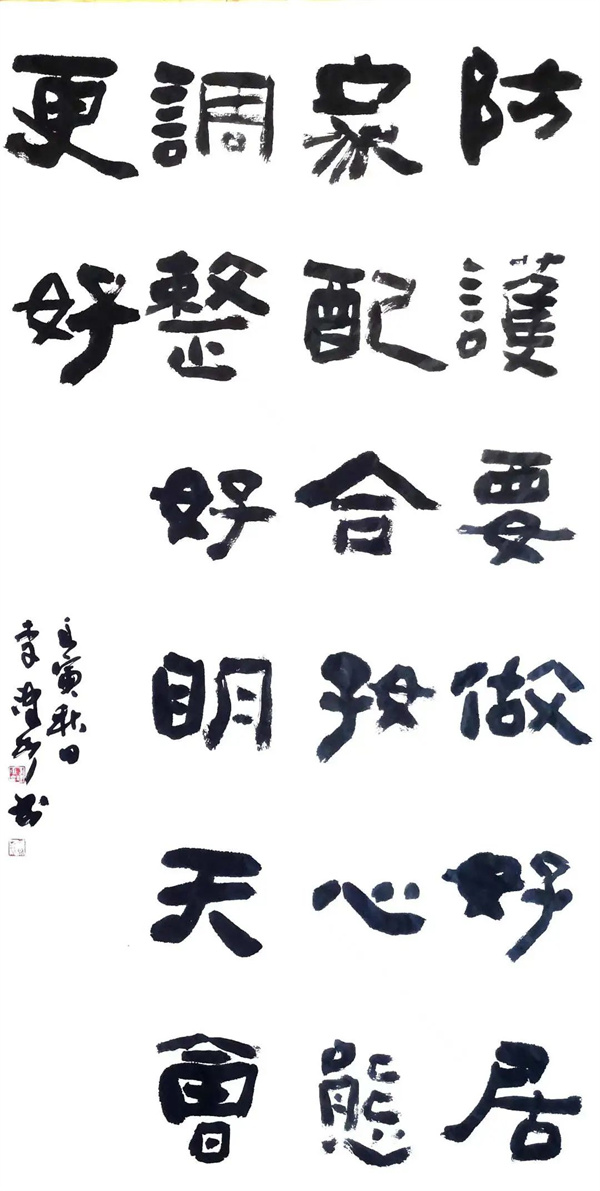 防護要做好居
家配合好心態
調整好明天會
更好
壬寅秋日
李